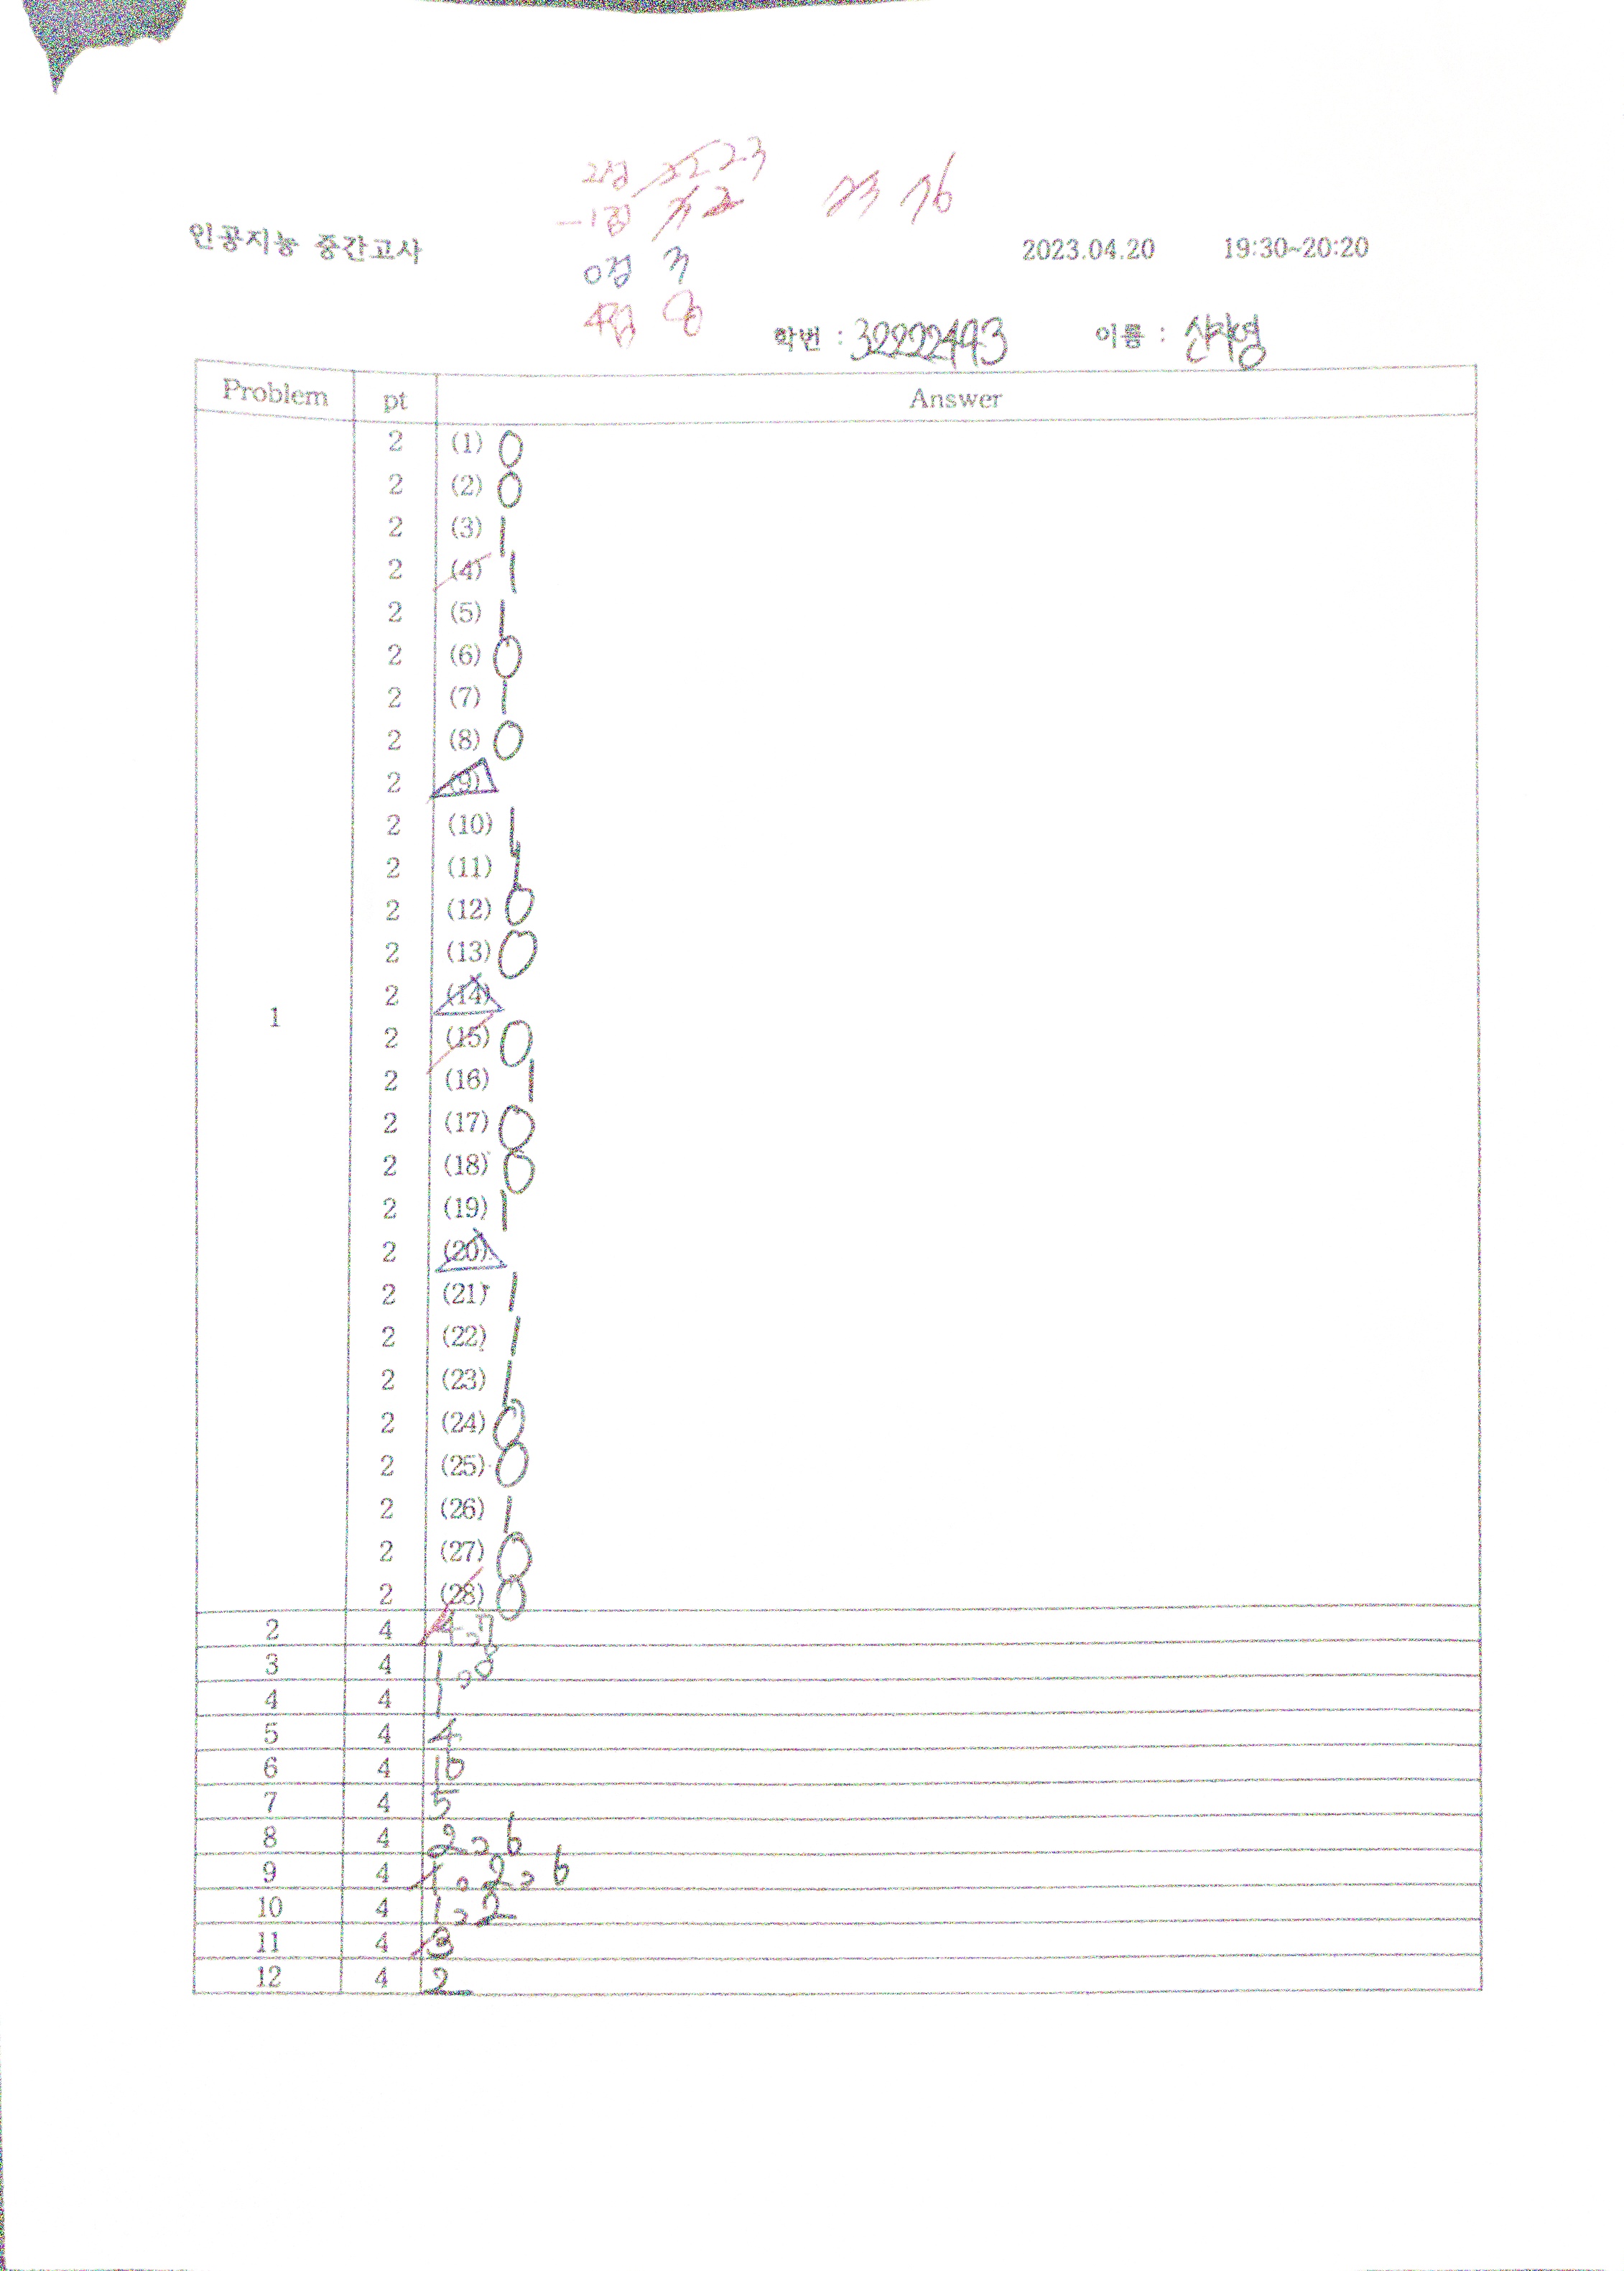 2점 23
-1점 2
73 76
인공지능 중간고사 2023.04.20 19:30~20:20
0점 3
4점 8
학번 : 32222493 이름 :
Problem pt Answer
1
2 (1) 0
2 (2) 0
2 (3) 1
2 (4) 1
2 (5) 1
2 (6) 0
2 (7) 1
2 (8) 0
2 (9)
2 (10) 1
2 (11) 1
2 (12) 0
2 (13) 0
2 (14)
2 (15) 0
2 (16) 1
2 (17) 0
2 (18) 0
2 (19) 1
2 (20)
2 (21) 1
2 (22) 1
2 (23) 1
2 (24) 0
2 (25) 0
2 (26) 1
2 (27) 0
2 (28) 0
2 4 4, 7
3 4 1, 8
4 4 1
5 4 4
6 4 16
7 4 5
8 4 2, 6
9 4 1, 2, 6
10 4 1, 2
11 4 3
12 4 2